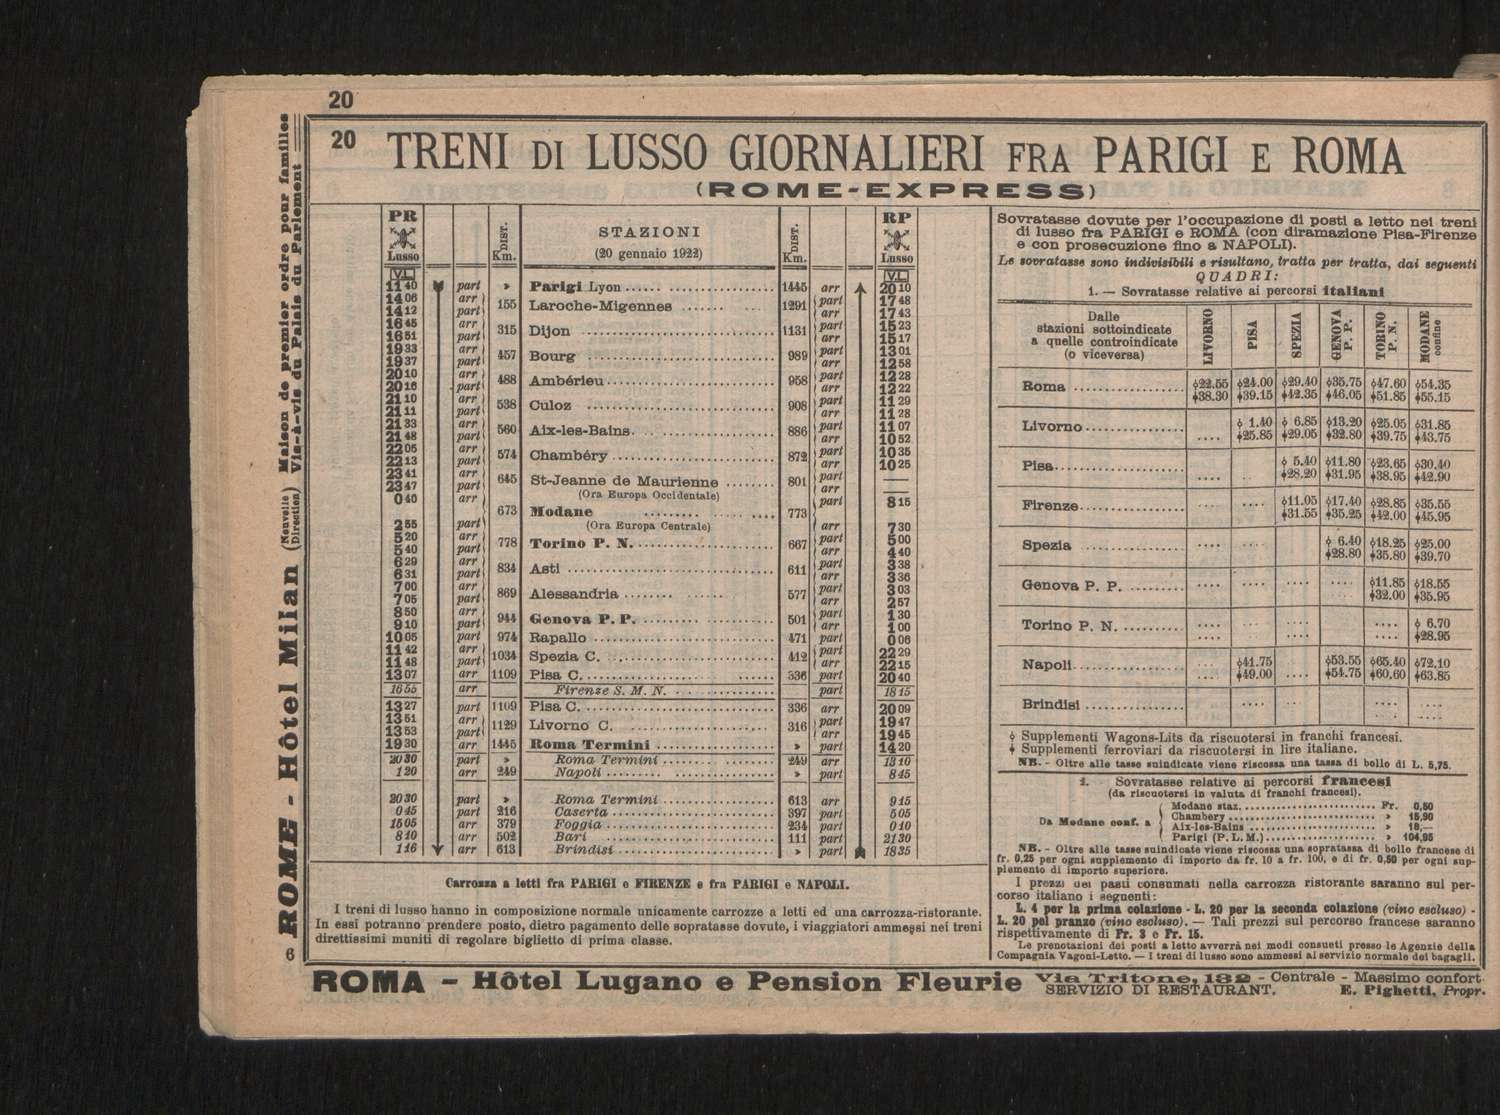 20
20 TRENI DI LUSSO GIORNALIERI FRA PARIGI E ROMA
(ROME-EXPRESS)
PR Lusso DIST. Km. STAZIONI (20 gennaio 1922) DIST. Km. RP Lusso
V.L. V.L.
11 40 part » Parigi Lyon 1445 arr 20 10
14 06 arr 155 Laroche-Migennes 1291 part 17 48
14 12 part arr 17 43
16 45 arr 315 Dijon 1131 part 15 23
16 51 part arr 15 17
19 33 arr 457 Bourg 989 part 13 01
19 37 part arr 12 58
20 10 arr 488 Ambérieu 958 part 12 28
20 16 part arr 12 22
21 10 arr 538 Culoz 908 part 11 29
21 11 part arr 11 28
21 33 arr 560 Aix-les-Bains 886 part 11 07
21 48 part arr 10 52
22 05 arr 574 Chambéry 872 part 10 35
22 13 part arr 10 25
23 41 arr 645 St-Jeanne de Maurienne 801 part —
23 47 part (Ora Europa Occidentale) arr —
0 40 arr 673 Modane 773 part 8 15
2 55 part (Ora Europa Centrale) arr 7 30
5 20 arr 778 Torino P. N. 667 part 5 00
5 40 part arr 4 40
6 29 arr 834 Asti 611 part 3 38
6 31 part arr 3 36
7 00 arr 869 Alessandria 577 part 3 03
7 05 part arr 2 57
8 50 arr 944 Genova P. P. 501 part 1 30
9 10 part arr 1 00
10 05 part 974 Rapallo 471 part 0 06
11 42 arr 1034 Spezia C. 412 part 22 29
11 48 part arr 22 15
13 07 arr 1109 Pisa C. 336 part 20 40
16 55 arr Firenze S. M. N. part 18 15
13 27 part 1109 Pisa C. 336 arr 20 09
13 51 arr 1129 Livorno C. 316 part 19 47
13 53 part arr 19 45
19 30 arr 1445 Roma Termini » part 14 20
20 30 part » Roma Termini 249 arr 13 10
1 20 arr 249 Napoli » part 8 45
20 30 part » Roma Termini 613 arr 9 15
0 45 part 216 Caserta 397 part 5 05
15 05 arr 379 Foggia 234 part 0 10
8 10 arr 502 Bari 111 part 21 30
1 16 arr 613 Brindisi » part 18 35
Carrozza a letti fra PARIGI e FIRENZE e fra PARIGI e NAPOLI.
I treni di lusso hanno in composizione normale unicamente carrozze a letti ed una carrozza-ristorante.
In essi potranno prendere posto, dietro pagamento delle sopratasse dovute, i viaggiatori ammessi nei treni
direttissimi muniti di regolare biglietto di prima classe.
Sovratasse dovute per l'occupazione di posti a letto nei treni
di lusso fra PARIGI e ROMA (con diramazione Pisa-Firenze
e con prosecuzione fino a NAPOLI).
Le sovratasse sono indivisibili e risultano, tratta per tratta, dai seguenti
QUADRI:
1. — Sovratasse relative ai percorsi italiani
Dalle stazioni sottoindicate a quelle controindicate (o viceversa) LIVORNO PISA SPEZIA GENOVA P. P. TORINO P. N. MODANE confine
Roma ϕ22.55 ϕ24.00 ϕ29.40 ϕ35.75 ϕ47.60 ϕ54.35
⌖38.30 ⌖39.15 ⌖42.35 ⌖46.05 ⌖51.85 ⌖55.15
Livorno .... ϕ 1.40 ϕ 6.85 ϕ13.20 ϕ25.05 ϕ31.85
⌖25.85 ⌖29.05 ⌖32.80 ⌖39.75 ⌖43.75
Pisa .... .... ϕ 5.40 ϕ11.80 ϕ23.65 ϕ30.40
⌖28.20 ⌖31.95 ⌖38.95 ⌖42.90
Firenze .... .... ϕ11.05 ϕ17.40 ϕ28.85 ϕ35.55
⌖31.55 ⌖35.25 ⌖42.00 ⌖45.95
Spezia .... .... .... ϕ 6.40 ϕ18.25 ϕ25.00
⌖28.80 ⌖35.80 ⌖39.70
Genova P. P. .... .... .... .... ϕ11.85 ϕ18.55
⌖32.00 ⌖35.95
Torino P. N. .... .... .... .... .... ϕ 6.70
⌖28.95
Napoli .... ϕ41.75 .... ϕ53.55 ϕ65.40 ϕ72.10
⌖49.00 ⌖54.75 ⌖60.60 ⌖63.85
Brindisi .... .... .... .... .... ....
ϕ Supplementi Wagons-Lits da riscuotersi in franchi francesi.
⌖ Supplementi ferroviari da riscuotersi in lire italiane.
NB. - Oltre alle tasse suindicate viene riscossa una tassa di bollo di L. 5,75.
2. Sovratasse relative ai percorsi francesi
(da riscuotersi in valuta di franchi francesi).
Da Modane conf. a
Modane staz. Fr. 0,50
Chambery » 15,90
Aix-les-Bains » 18,—
Parigi (P. L. M.) » 104,95
NB. - Oltre alle tasse suindicate viene riscossa una sopratassa di bollo francese di
fr. 0,25 per ogni supplemento di importo da fr. 10 a fr. 100, e di fr. 0,50 per ogni sup-
plemento di importo superiore.
I prezzi dei pasti consumati nella carrozza ristorante saranno sul per-
corso italiano i seguenti:
L. 4 per la prima colazione - L. 20 per la seconda colazione (vino escluso) -
L. 20 pel pranzo (vino escluso). — Tali prezzi sul percorso francese saranno
rispettivamente di Fr. 3 e Fr. 15.
Le prenotazioni dei posti a letto avverrà nei modi consueti presso le Agenzie della
Compagnia Vagoni-Letto. — I treni di lusso sono ammessi al servizio normale dei bagagli.
ROME - Hôtel Milan (Nouvelle Direction) Maison de premier ordre pour familles
Vis-à-vis du Palais du Parlement
6
ROMA - Hôtel Lugano e Pension Fleurie Via Tritone, 132 - Centrale - Massimo confort
SERVIZIO DI RESTAURANT. E. Pighetti, Propr.